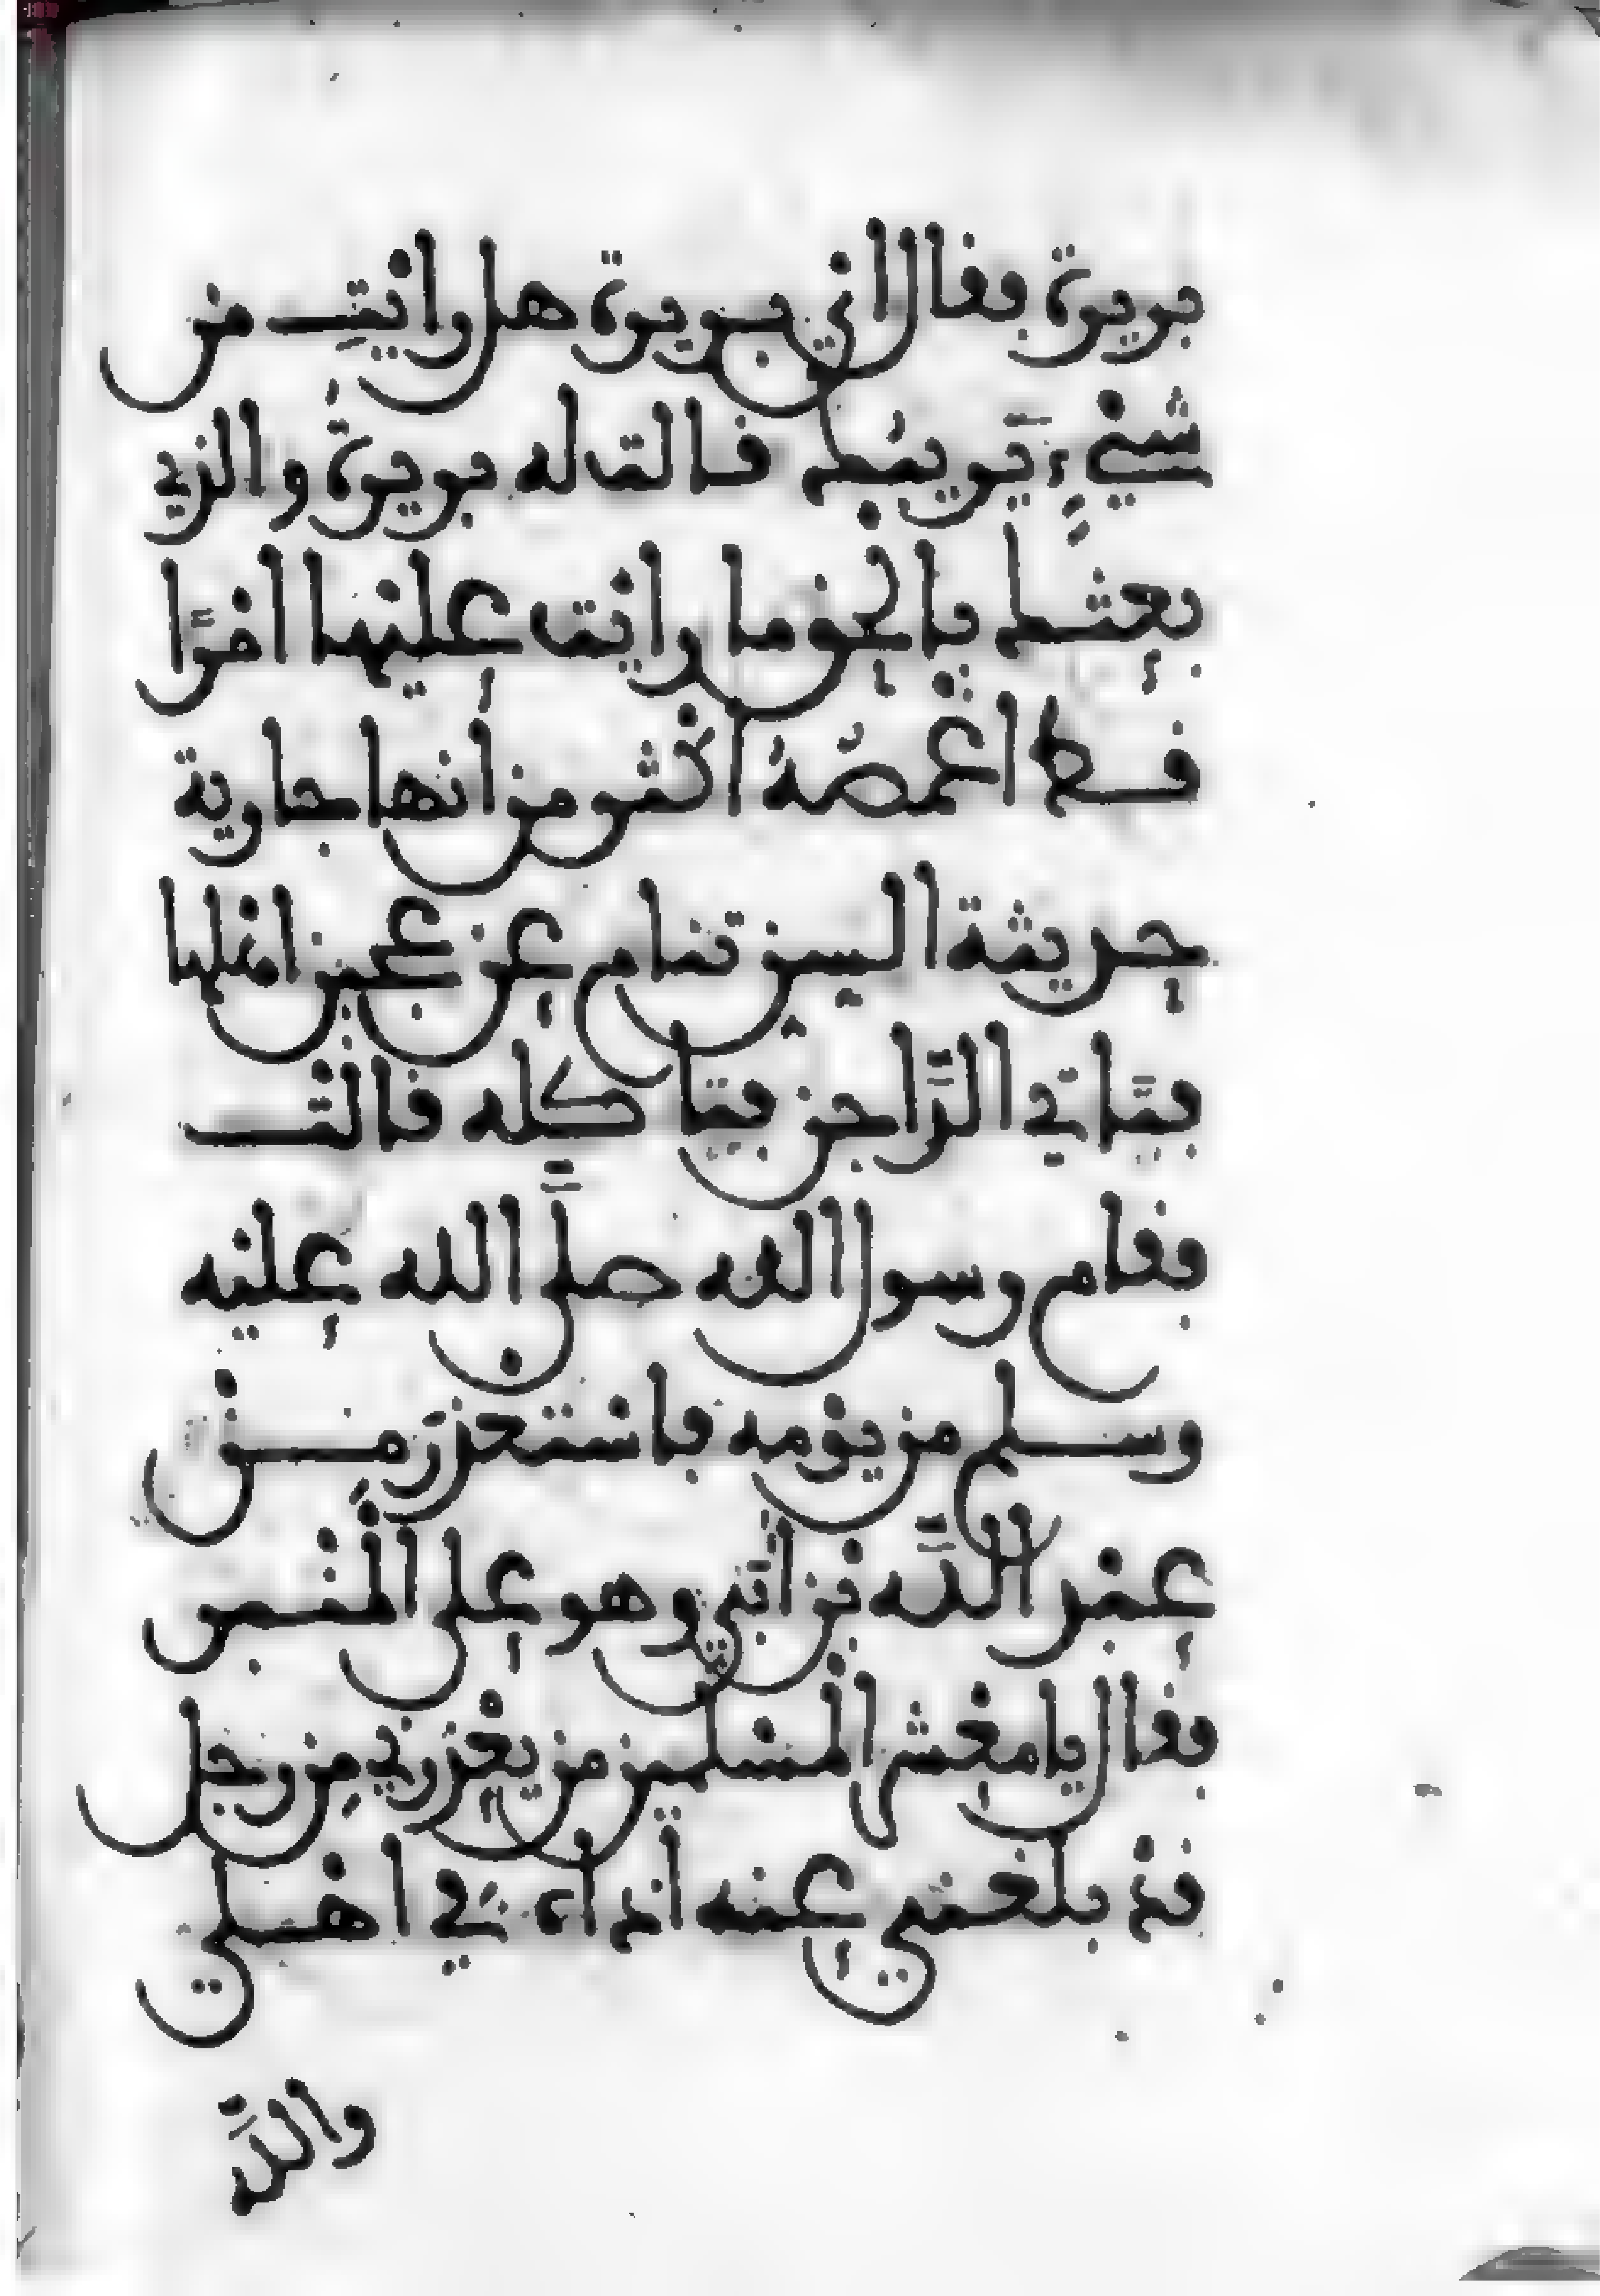 بريرة فقال اي بريرة هل رايت من
شيء يريبك قالت له بريرة والذي
بعثك بالحق ما رايت عليها امرا
قط اغمصه اكثر من انها جارية
حديثة السن تنام عن عجين اهلها
فياتي الداجن فيا كله قالت
فقام رسول الله صلى الله عليه
وسلم من يومه فاستعذر من
عبد الله بن ابي وهو على المنبر
فقال يا معشر المسلمين من يعذرني من رجل
قد بلغني عنه اذاه في اهلي
والله